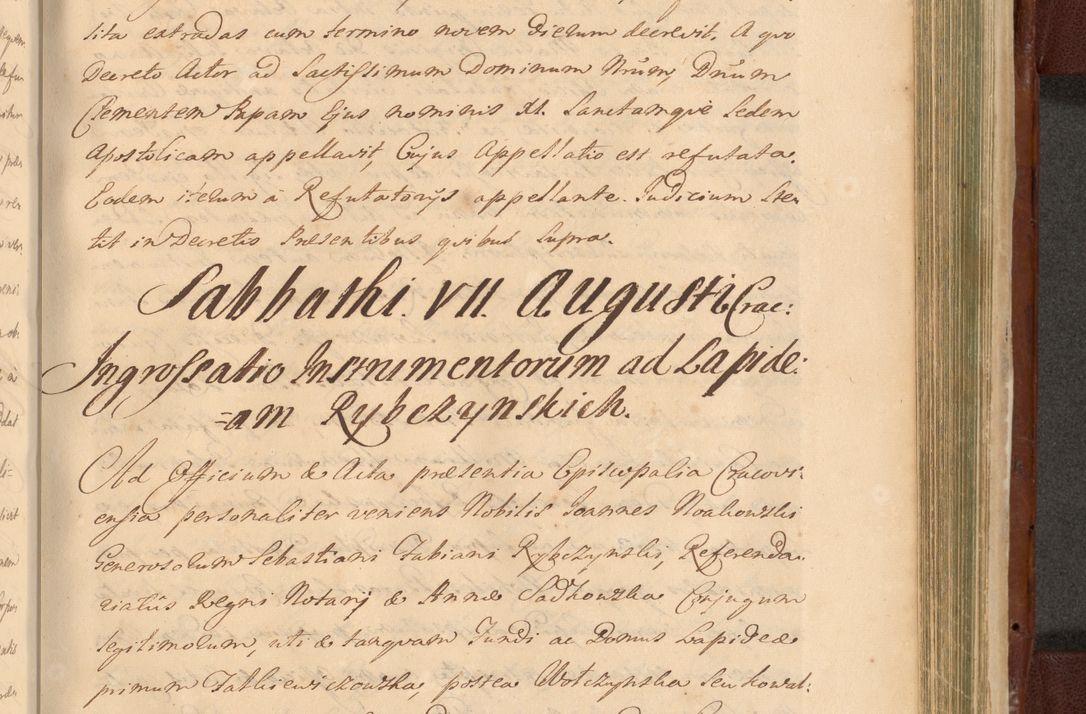 sita extradas cum termino novem dierum decrevit, A quo
Decreto Actor ad Sactissimum Dominum Nrūm Dnūm
Clementem Papam Ejus nominis XI. Sanctamque Sedem
Apostolicam appellavit, Cujus Appellatio est refutata.
Eodem iterum à Refutatorijs appellante. Judicium Ste
tit in Decretis Præsentibus quibus supra.
Sabbathi. VII. Augusti Crac:
Ingrossatio Instrumentorum ad Lapide:
=am Rybczynskich.
Ad Officium & Acta præsentia Episcopalia Cracovi:
ensia personaliter veniens Nobilis Joannes Noakowski
Generosorum Sebastiani Fabiani Rybczynski, Referenda
riatûs Regni Notarij & Annæ Sadkowska Conjugum
legitimorum, uti & tanquam Fundi ac Domus Lapideæ
primum Falkiewiczowska, postea Wolczynska seu Kowal: